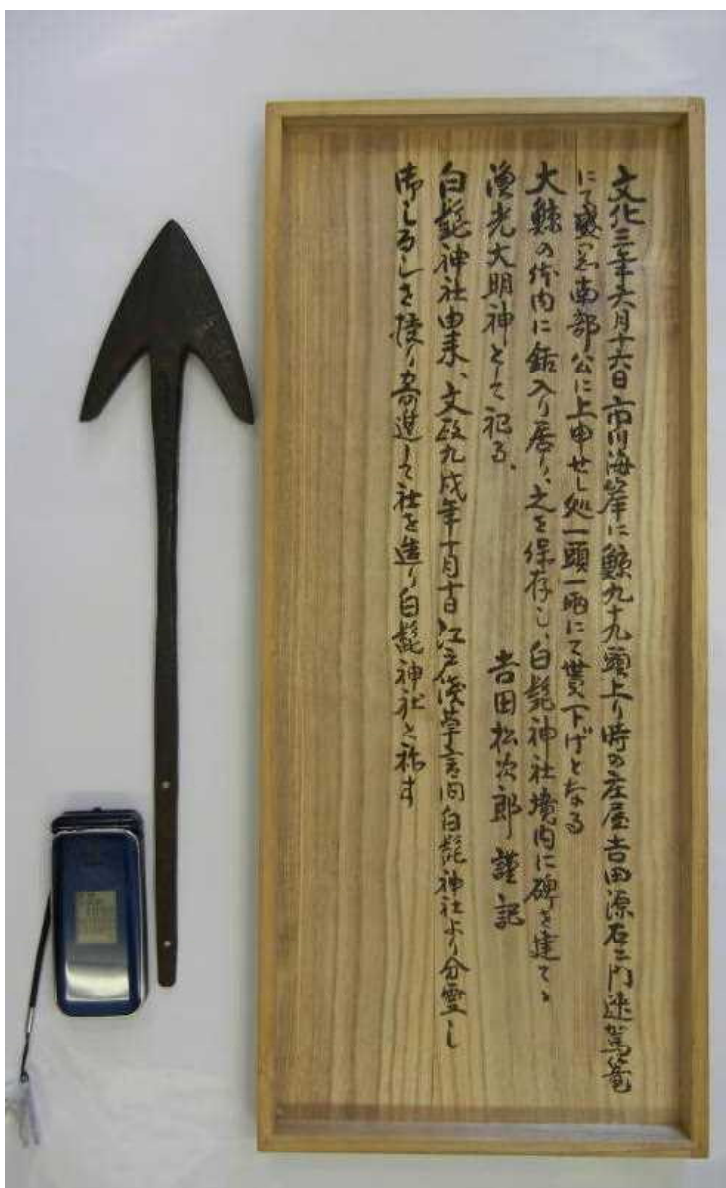 文化三年六月十六日市川海岸に鯨九十九頭上り時の庄屋吉田源右エ門速駕篭
にて盛岡南部公に上申せし処一頭一両にて貰下げとなる
大鯨の体内に銛入り居り、之を保存し、白髭神社境内に碑を建てゝ
漁光大明神として祀る、
吉田松次郎 謹記
白髭神社由来、文政九戌年十月十日江戸浅草言問白髭神社より分霊し
御しるしを授り寄進して社を造り白髭神社と称す